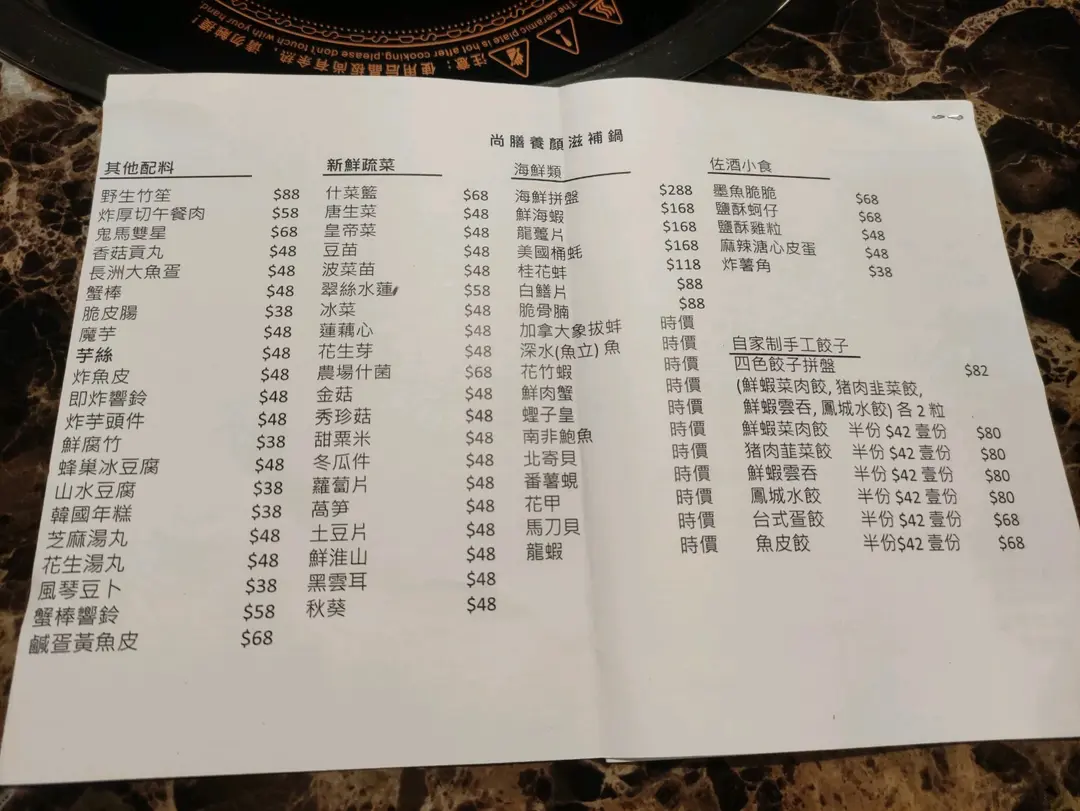 注意：使用后晶板尚有余热，请勿触摸！
The ceramic plate is hot after cooking,please don't touch with your hand
尚膳養顏滋補鍋
其他配料
野生竹笙 $88
炸厚切午餐肉 $58
鬼馬雙星 $68
香菇貢丸 $48
長洲大魚疍 $48
蟹棒 $48
脆皮腸 $38
魔芋 $48
芋絲 $48
炸魚皮 $48
即炸響鈴 $48
炸芋頭件 $48
鮮腐竹 $38
蜂巢冰豆腐 $48
山水豆腐 $38
韓國年糕 $38
芝麻湯丸 $48
花生湯丸 $48
風琴豆卜 $38
蟹棒響鈴 $58
鹹疍黃魚皮 $68
新鮮疏菜
什菜籃 $68
唐生菜 $48
皇帝菜 $48
豆苗 $48
波菜苗 $48
翠絲水蓮 $58
冰菜 $48
蓮藕心 $48
花生芽 $48
農場什菌 $68
金菇 $48
秀珍菇 $48
甜粟米 $48
冬瓜件 $48
蘿蔔片 $48
萵笋 $48
土豆片 $48
鮮淮山 $48
黑雲耳 $48
秋葵 $48
海鮮類
海鮮拼盤 $288
鮮海蝦 $168
龍躉片 $168
美國桶蚝 $168
桂花蚌 $118
白鱔片 $88
脆骨腩 $88
加拿大象拔蚌 時價
深水(魚立) 魚 時價
花竹蝦 時價
鮮肉蟹 時價
蟶子皇 時價
南非鮑魚 時價
北寄貝 時價
番薯蜆 時價
花甲 時價
馬刀貝 時價
龍蝦 時價
佐酒小食
墨魚脆脆 $68
鹽酥蚵仔 $68
鹽酥雞粒 $48
麻辣溏心皮蛋 $48
炸薯角 $38
自家制手工餃子
四色餃子拼盤 $82
(鮮蝦菜肉餃, 猪肉韭菜餃,
鮮蝦雲吞, 鳳城水餃) 各 2 粒
鮮蝦菜肉餃 半份 $42 壹份 $80
猪肉韭菜餃 半份 $42 壹份 $80
鮮蝦雲吞 半份 $42 壹份 $80
鳳城水餃 半份 $42 壹份 $80
台式蛋餃 半份 $42 壹份 $68
魚皮餃 半份$42 壹份 $68